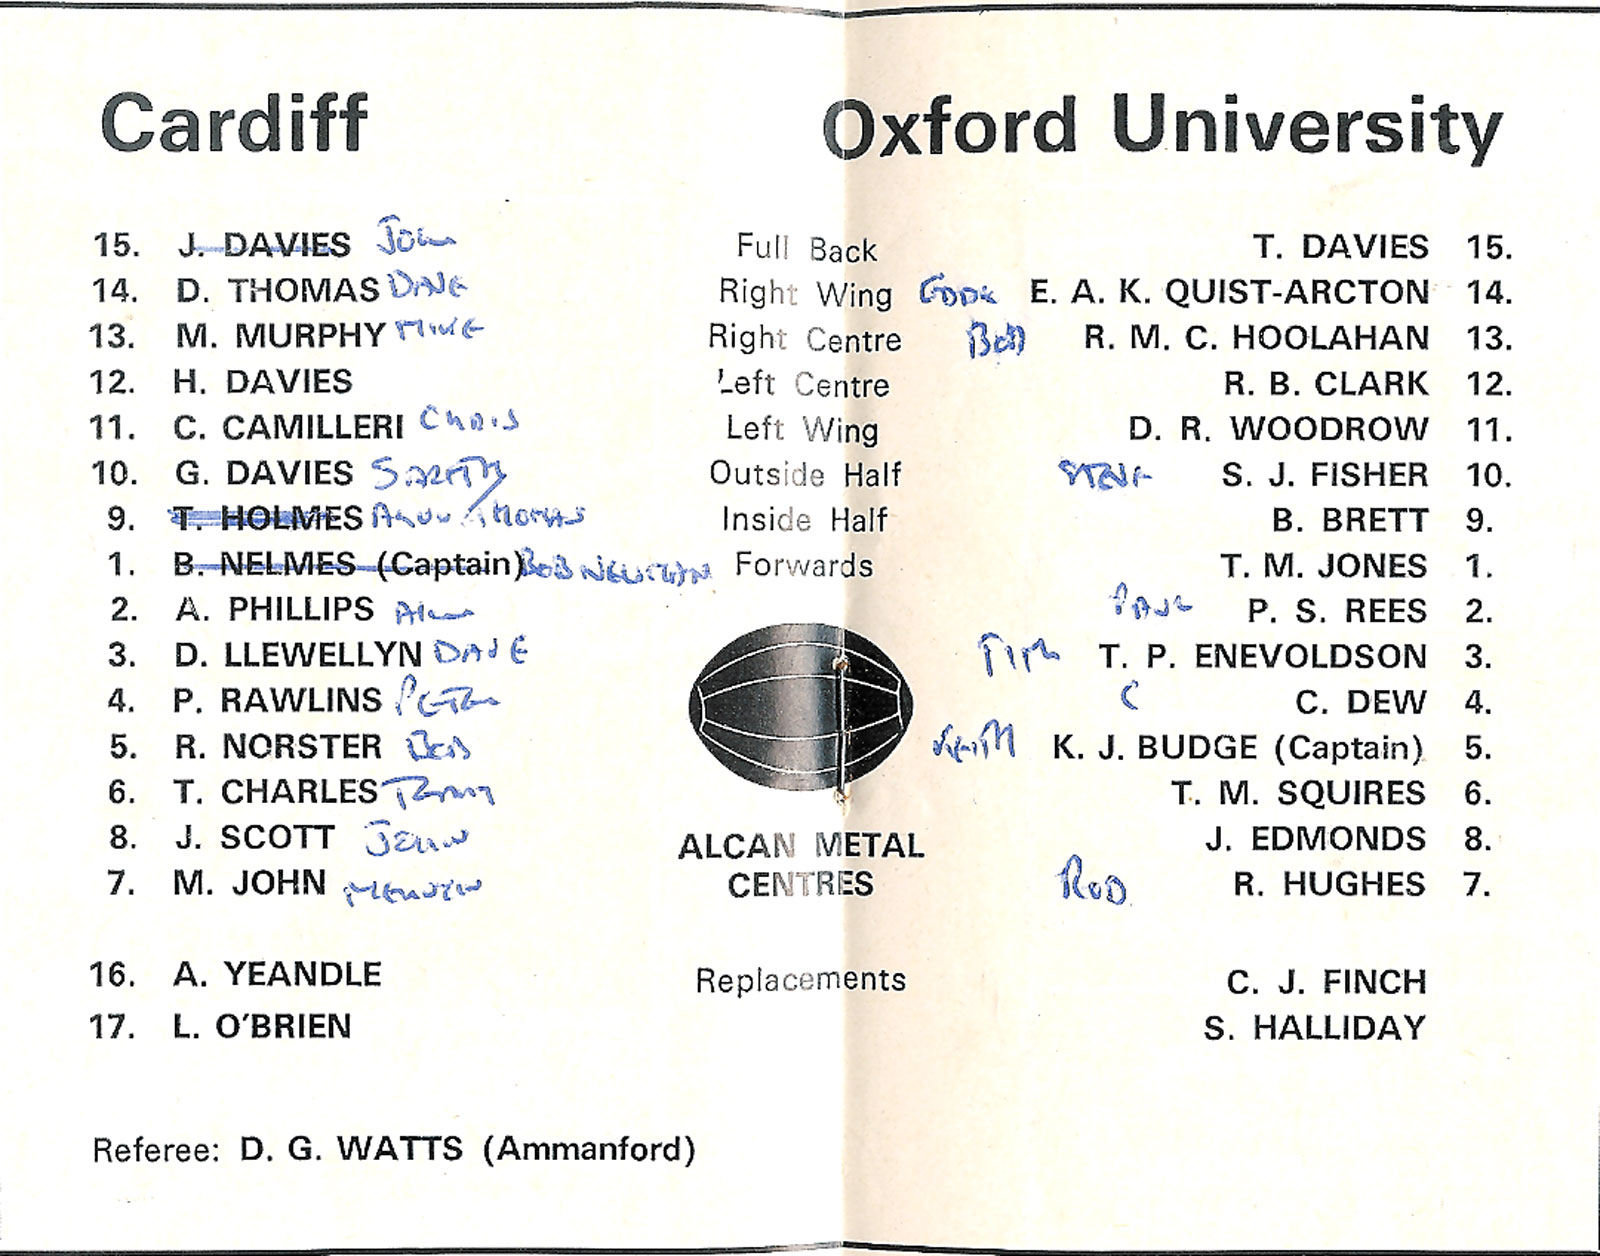 Cardiff Oxford University
15. J. DAVIES John Full Back T. DAVIES 15.
14. D. THOMAS DAVE Right Wing E. A. K. QUIST-ARCTON 14.
13. M. MURPHY MIKE Right Centre Bob R. M. C. HOOLAHAN 13.
12. H. DAVIES Left Centre R. B. CLARK 12.
11. C. CAMILLERI CHRIS Left Wing D. R. WOODROW 11.
10. G. DAVIES GARETH Outside Half STEVE S. J. FISHER 10.
9. T. HOLMES THOMAS Inside Half B. BRETT 9.
1. B. NELMES (Captain) BOB NEWMAN Forwards T. M. JONES 1.
2. A. PHILLIPS Alan PAUL P. S. REES 2.
3. D. LLEWELLYN DAVE Tim T. P. ENEVOLDSON 3.
4. P. RAWLINS PETER C C. DEW 4.
5. R. NORSTER BOB KEITH K. J. BUDGE (Captain) 5.
6. T. CHARLES Terry T. M. SQUIRES 6.
8. J. SCOTT JOHN J. EDMONDS 8.
7. M. JOHN MERVYN ROD R. HUGHES 7.
ALCAN METAL
CENTRES
16. A. YEANDLE Replacements C. J. FINCH
17. L. O'BRIEN S. HALLIDAY
Referee: D. G. WATTS (Ammanford)